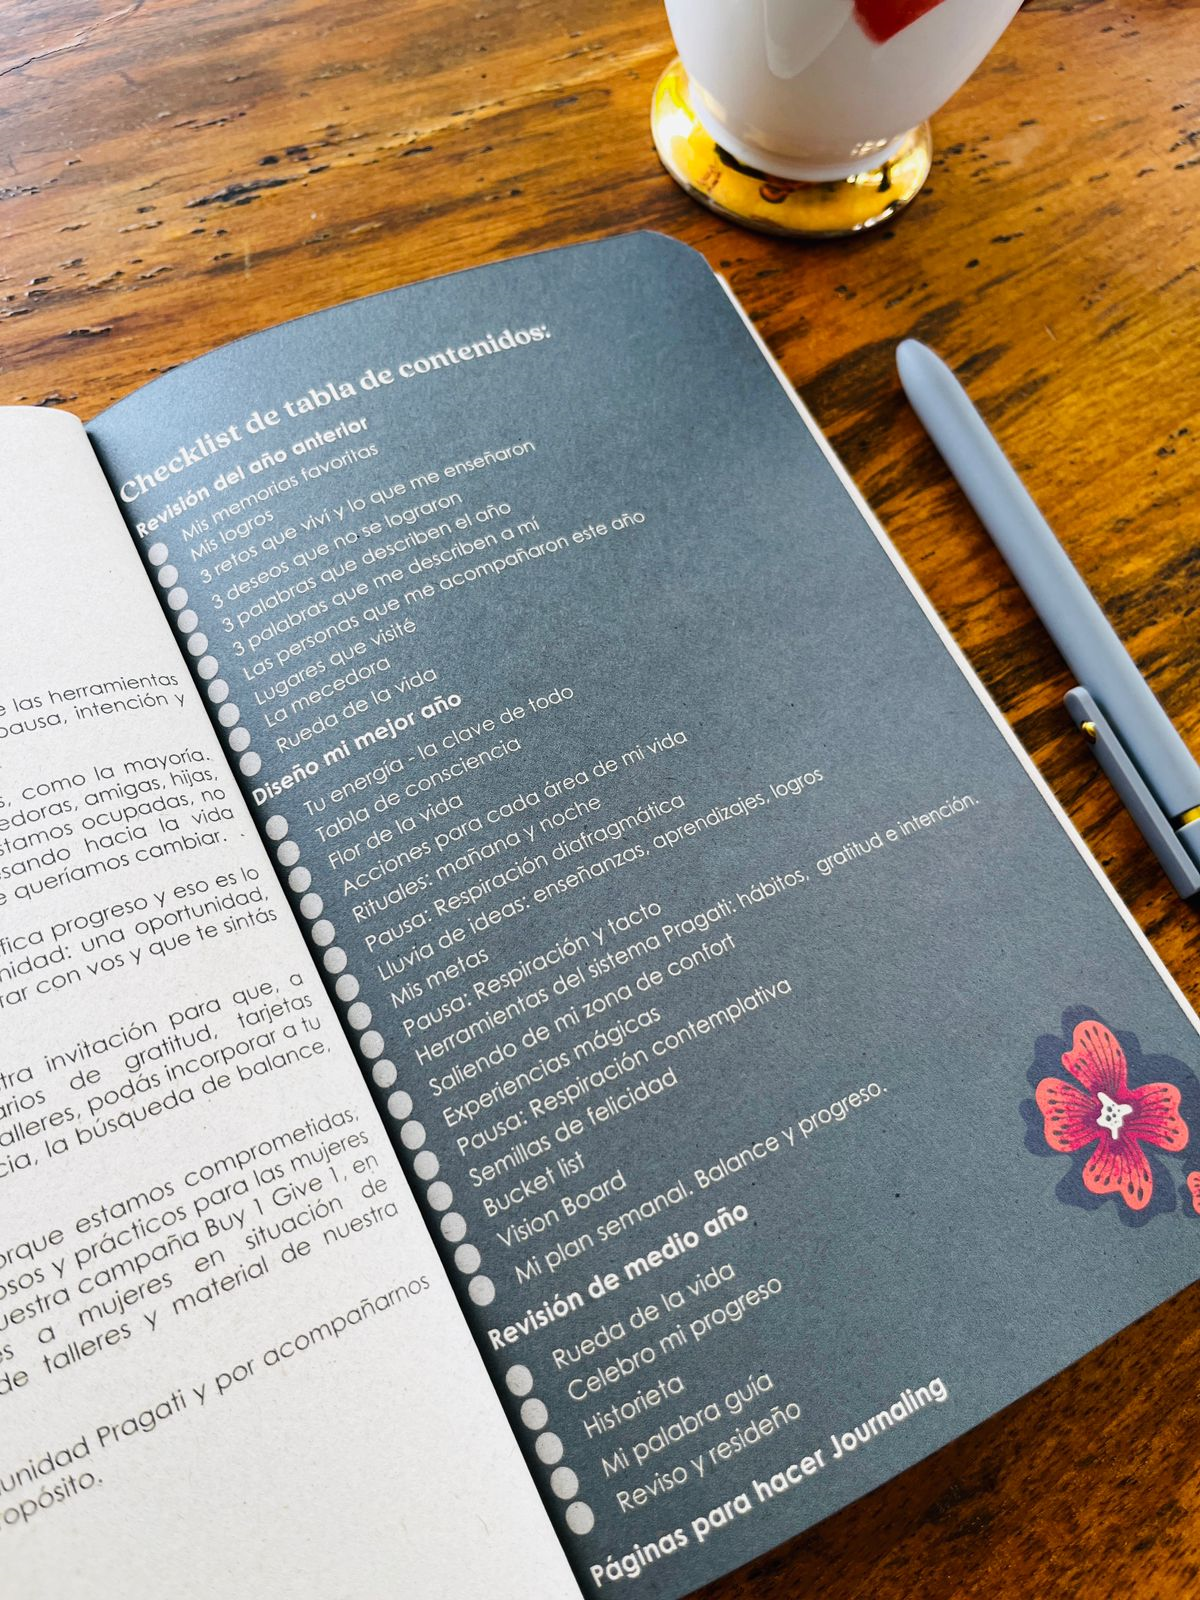 e las herramientas
pausa, intención y
s, como la mayoría.
edoras, amigas, hijas,
stamos ocupadas, no
sando hacia la vida
e queríamos cambiar.
fica progreso y eso es lo
nidad: una oportunidad,
rar con vos y que te sintás
tra invitación para que, a
arios de gratitud, tarjetas
alleres, podás incorporar a tu
cia, la búsqueda de balance,
orque estamos comprometidas,
osos y prácticos para las mujeres
uestra campaña Buy 1 Give 1, en
es a mujeres en situación de
de talleres y material de nuestra
unidad Pragati y por acompañarnos
opósito.
Checklist de tabla de contenidos:
Revisión del año anterior
Mis memorias favoritas
Mis logros
3 retos que viví y lo que me enseñaron
3 deseos que no se lograron
3 palabras que describen el año
3 palabras que me describen a mí
Las personas que me acompañaron este año
Lugares que visité
La mecedora
Rueda de la vida
Diseño mi mejor año
Tu energía - la clave de todo
Tabla de consciencia
Flor de la vida
Acciones para cada área de mi vida
Rituales: mañana y noche
Pausa: Respiración diafragmática
Lluvia de ideas: enseñanzas, aprendizajes, logros
Mis metas
Pausa: Respiración y tacto
Herramientas del sistema Pragati: hábitos, gratitud e intención.
Saliendo de mi zona de confort
Experiencias mágicas
Pausa: Respiración contemplativa
Semillas de felicidad
Bucket list
Vision Board
Mi plan semanal. Balance y progreso.
Revisión de medio año
Rueda de la vida
Celebro mi progreso
Historieta
Mi palabra guía
Reviso y resideño
Páginas para hacer Journaling